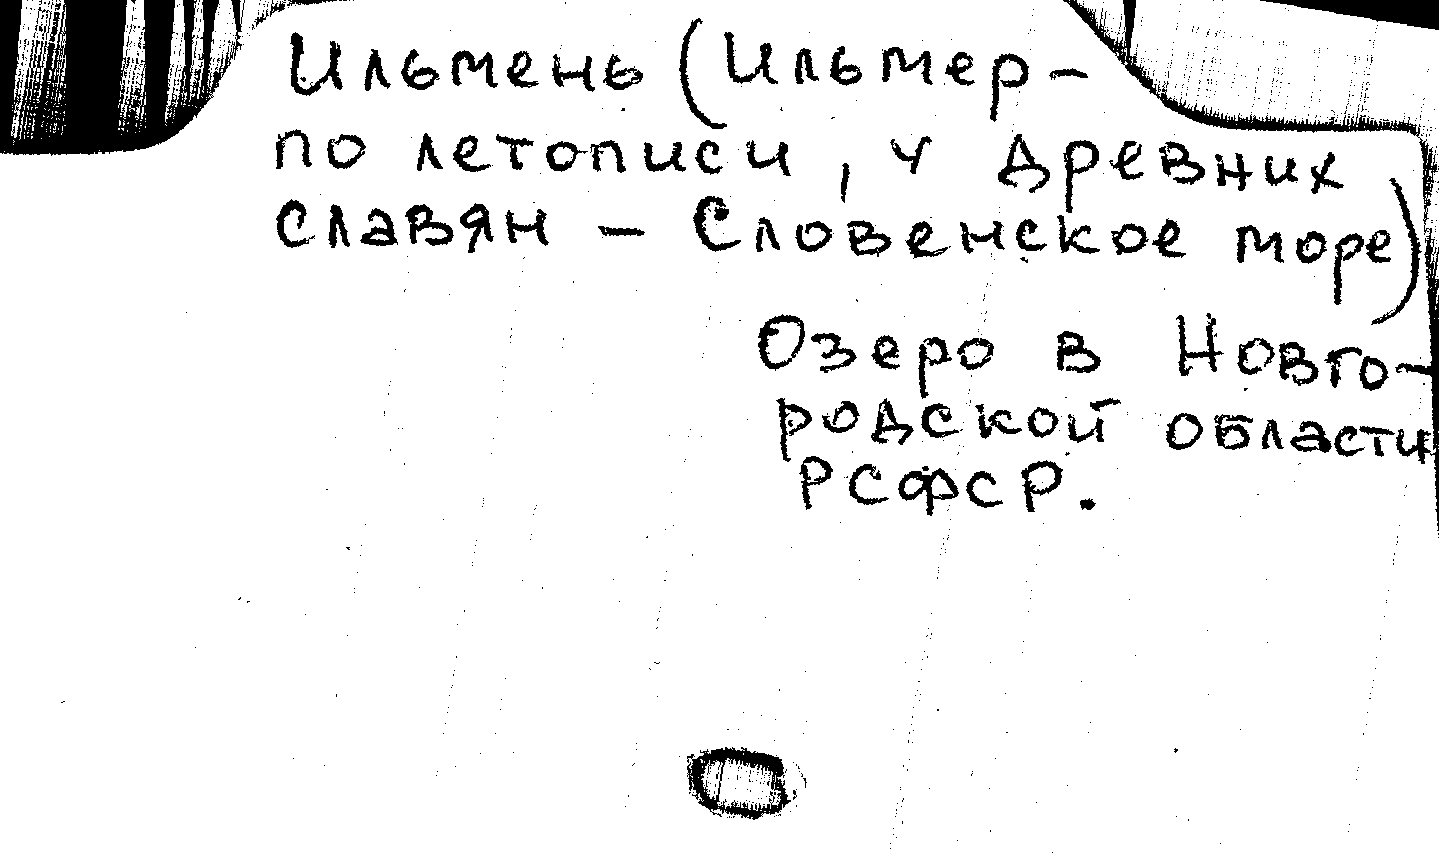 Ильмень (Ильмер-
по летописи, у древних
славян - Словенское море)
Озеро в Новго-
родской области
РСФСР.